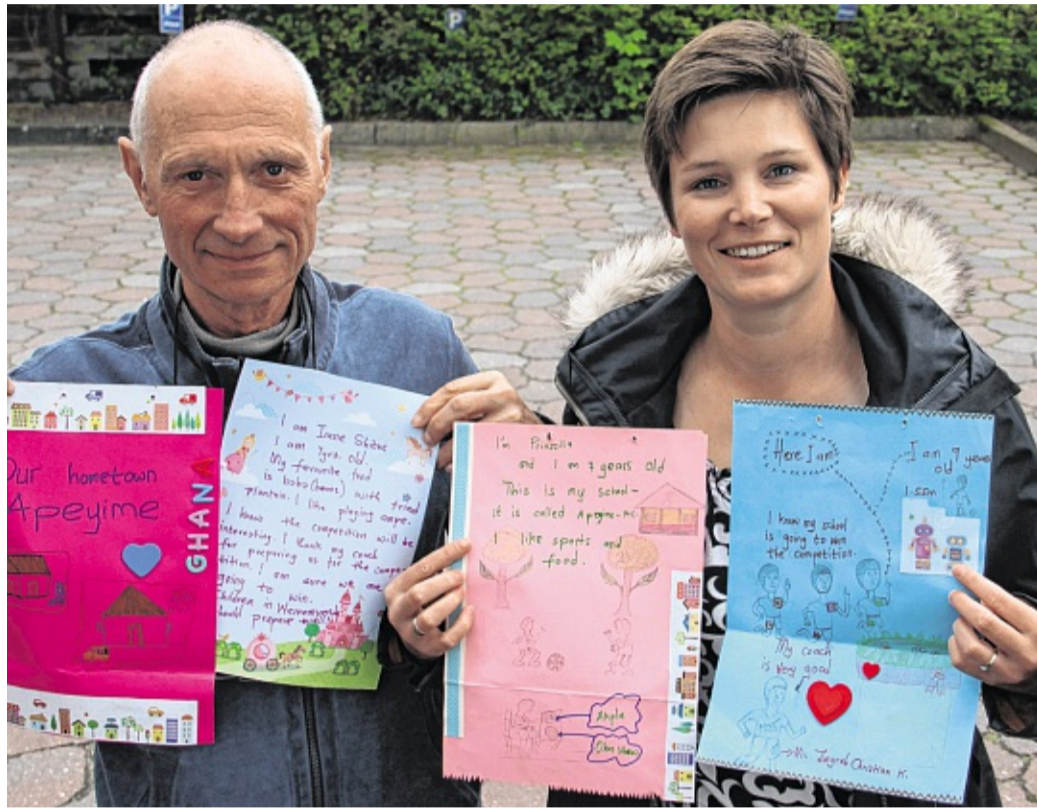 P
Our hometown
Apeyime
GHAN
I am Irene
I am 7yrs. old.
My favourite food
is bobo(beans) with fried
plantain. I like playing ampe.
I know the competition will be
interesting. I thank my coach
for preparing us for the compe-
tition. I am sure we are
going to win.
Children in
should prepare well
I'm Priscilla
and I am 7 years old
This is my school-
it is called
I like sports and
food.
Here I am
I am 7 years
old
I know my school
is going to win
the competition.
My coach
is very good
Mr. Christian K.